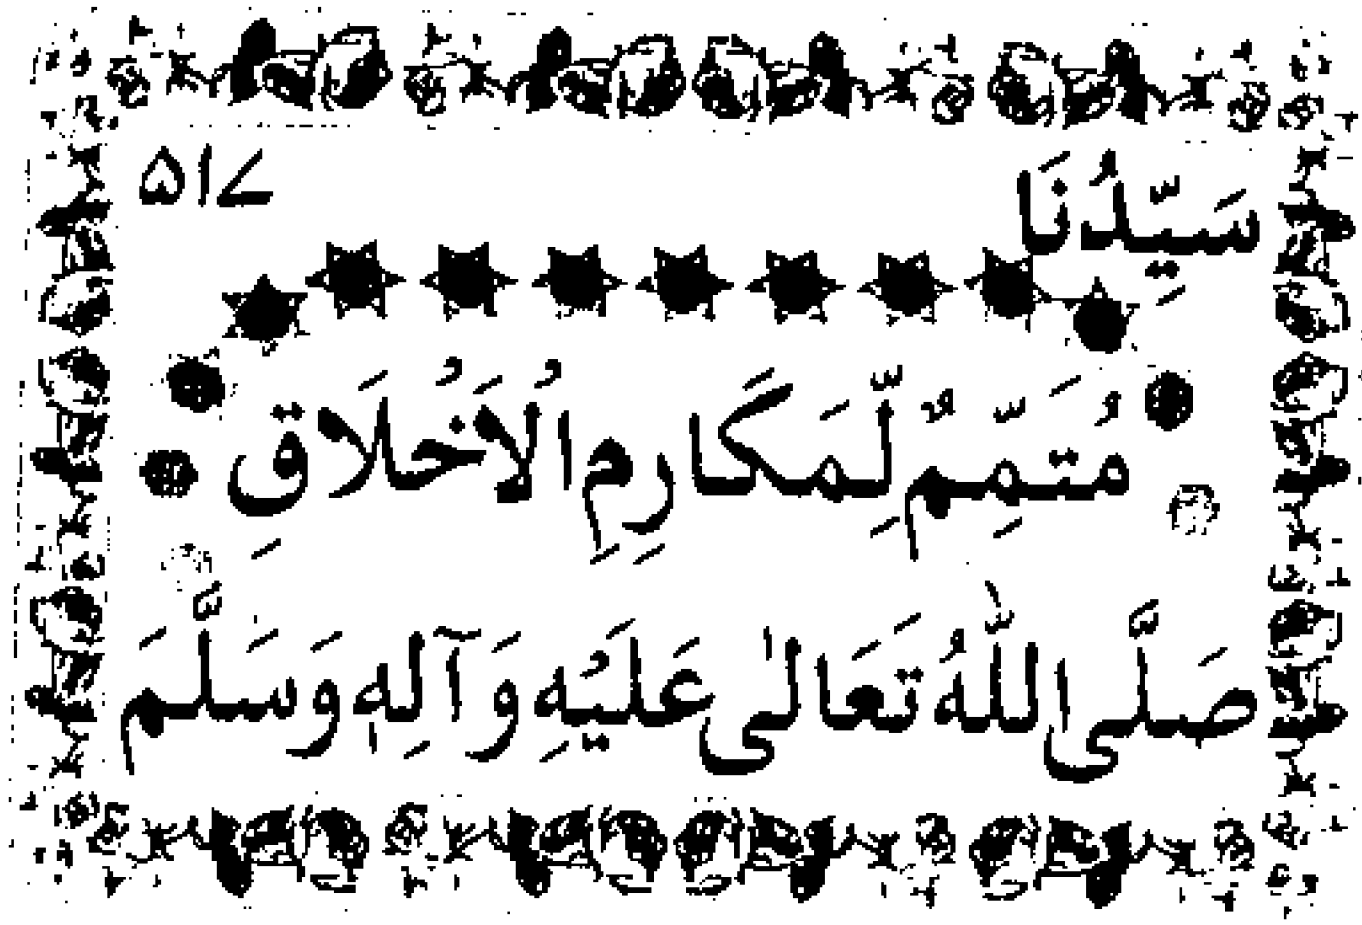 سَيِّدُنَا
۵۱۷
مُتَمِّمٌ لِّمَكَارِمِ الْاَخْلَاقِ
صَلَّى اللّٰهُ تَعَالٰى عَلَيْهِ وَآلِهٖ وَسَلَّمَ